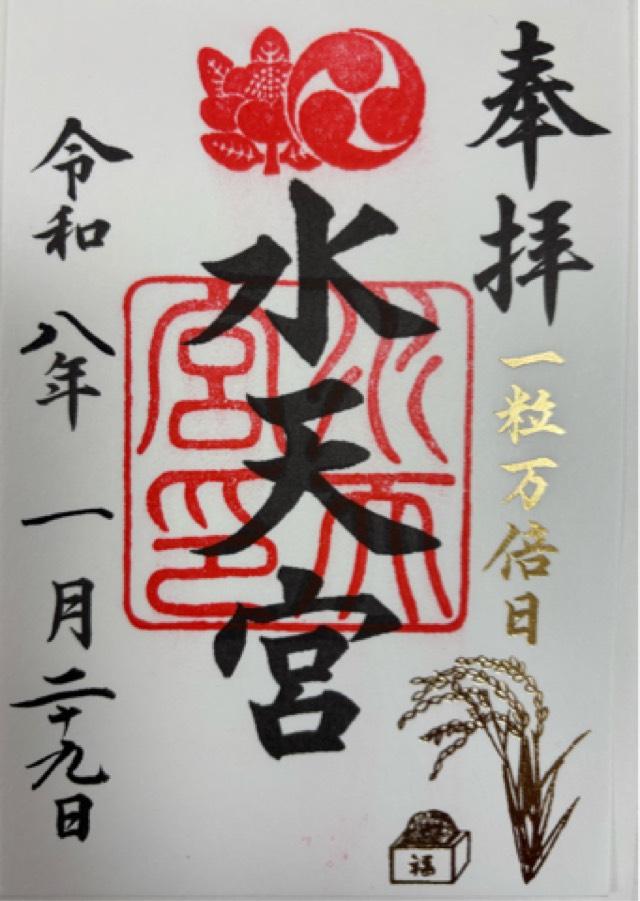 奉拝
一粒万倍日
福
水天宮
水天宮印
令和八年一月二十九日